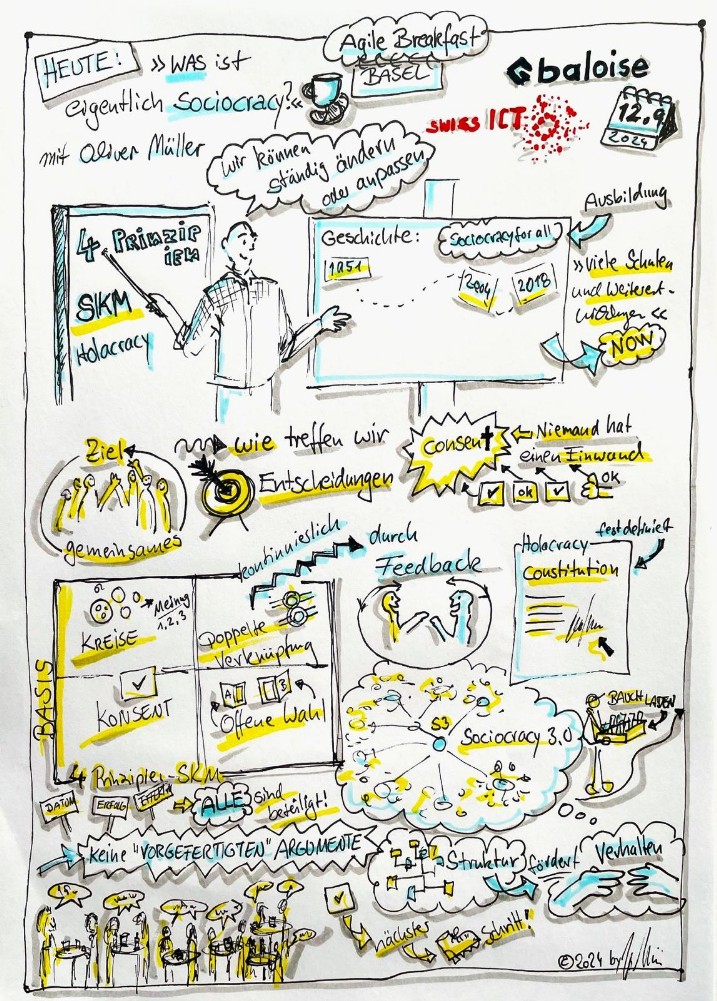 Agile Breakfast
BASEL
HEUTE:
»WAS ist
eigentlich Sociocracy?«
mit Oliver Müller
baloise
SWISS ICT
12.9
2024
Wir können
ständig ändern
oder anpassen
4 PRINZIP
IEN
SKM
Holacracy
Geschichte:
Sociocracy for all
1951
2004
2018
Ausbildung
»Viele Schulen
und Weiterent-
wicklungen«
NOW
Ziel
gemeinsames
wie treffen wir
Entscheidungen
Consent
Niemand hat
einen Einwand
OK
OK
kontinuierlich
durch
Feedback
Holacracy
festdefiniert
Constitution
BASIS
Meinung
1,2,3
KREISE
Doppelte
Verknüpfung
KONSENT
A
B
Offene Wahl
4 Prinzipien SKM
S3
Sociocracy 3.0
BAUCHLADEN
DATUM
ERFOLG
ALLE sind
beteiligt!
Keine "VORGEFERTIGTEN" ARGUMENTE
Struktur fördert Verhalten
nächster
Schritt!
©2024 by